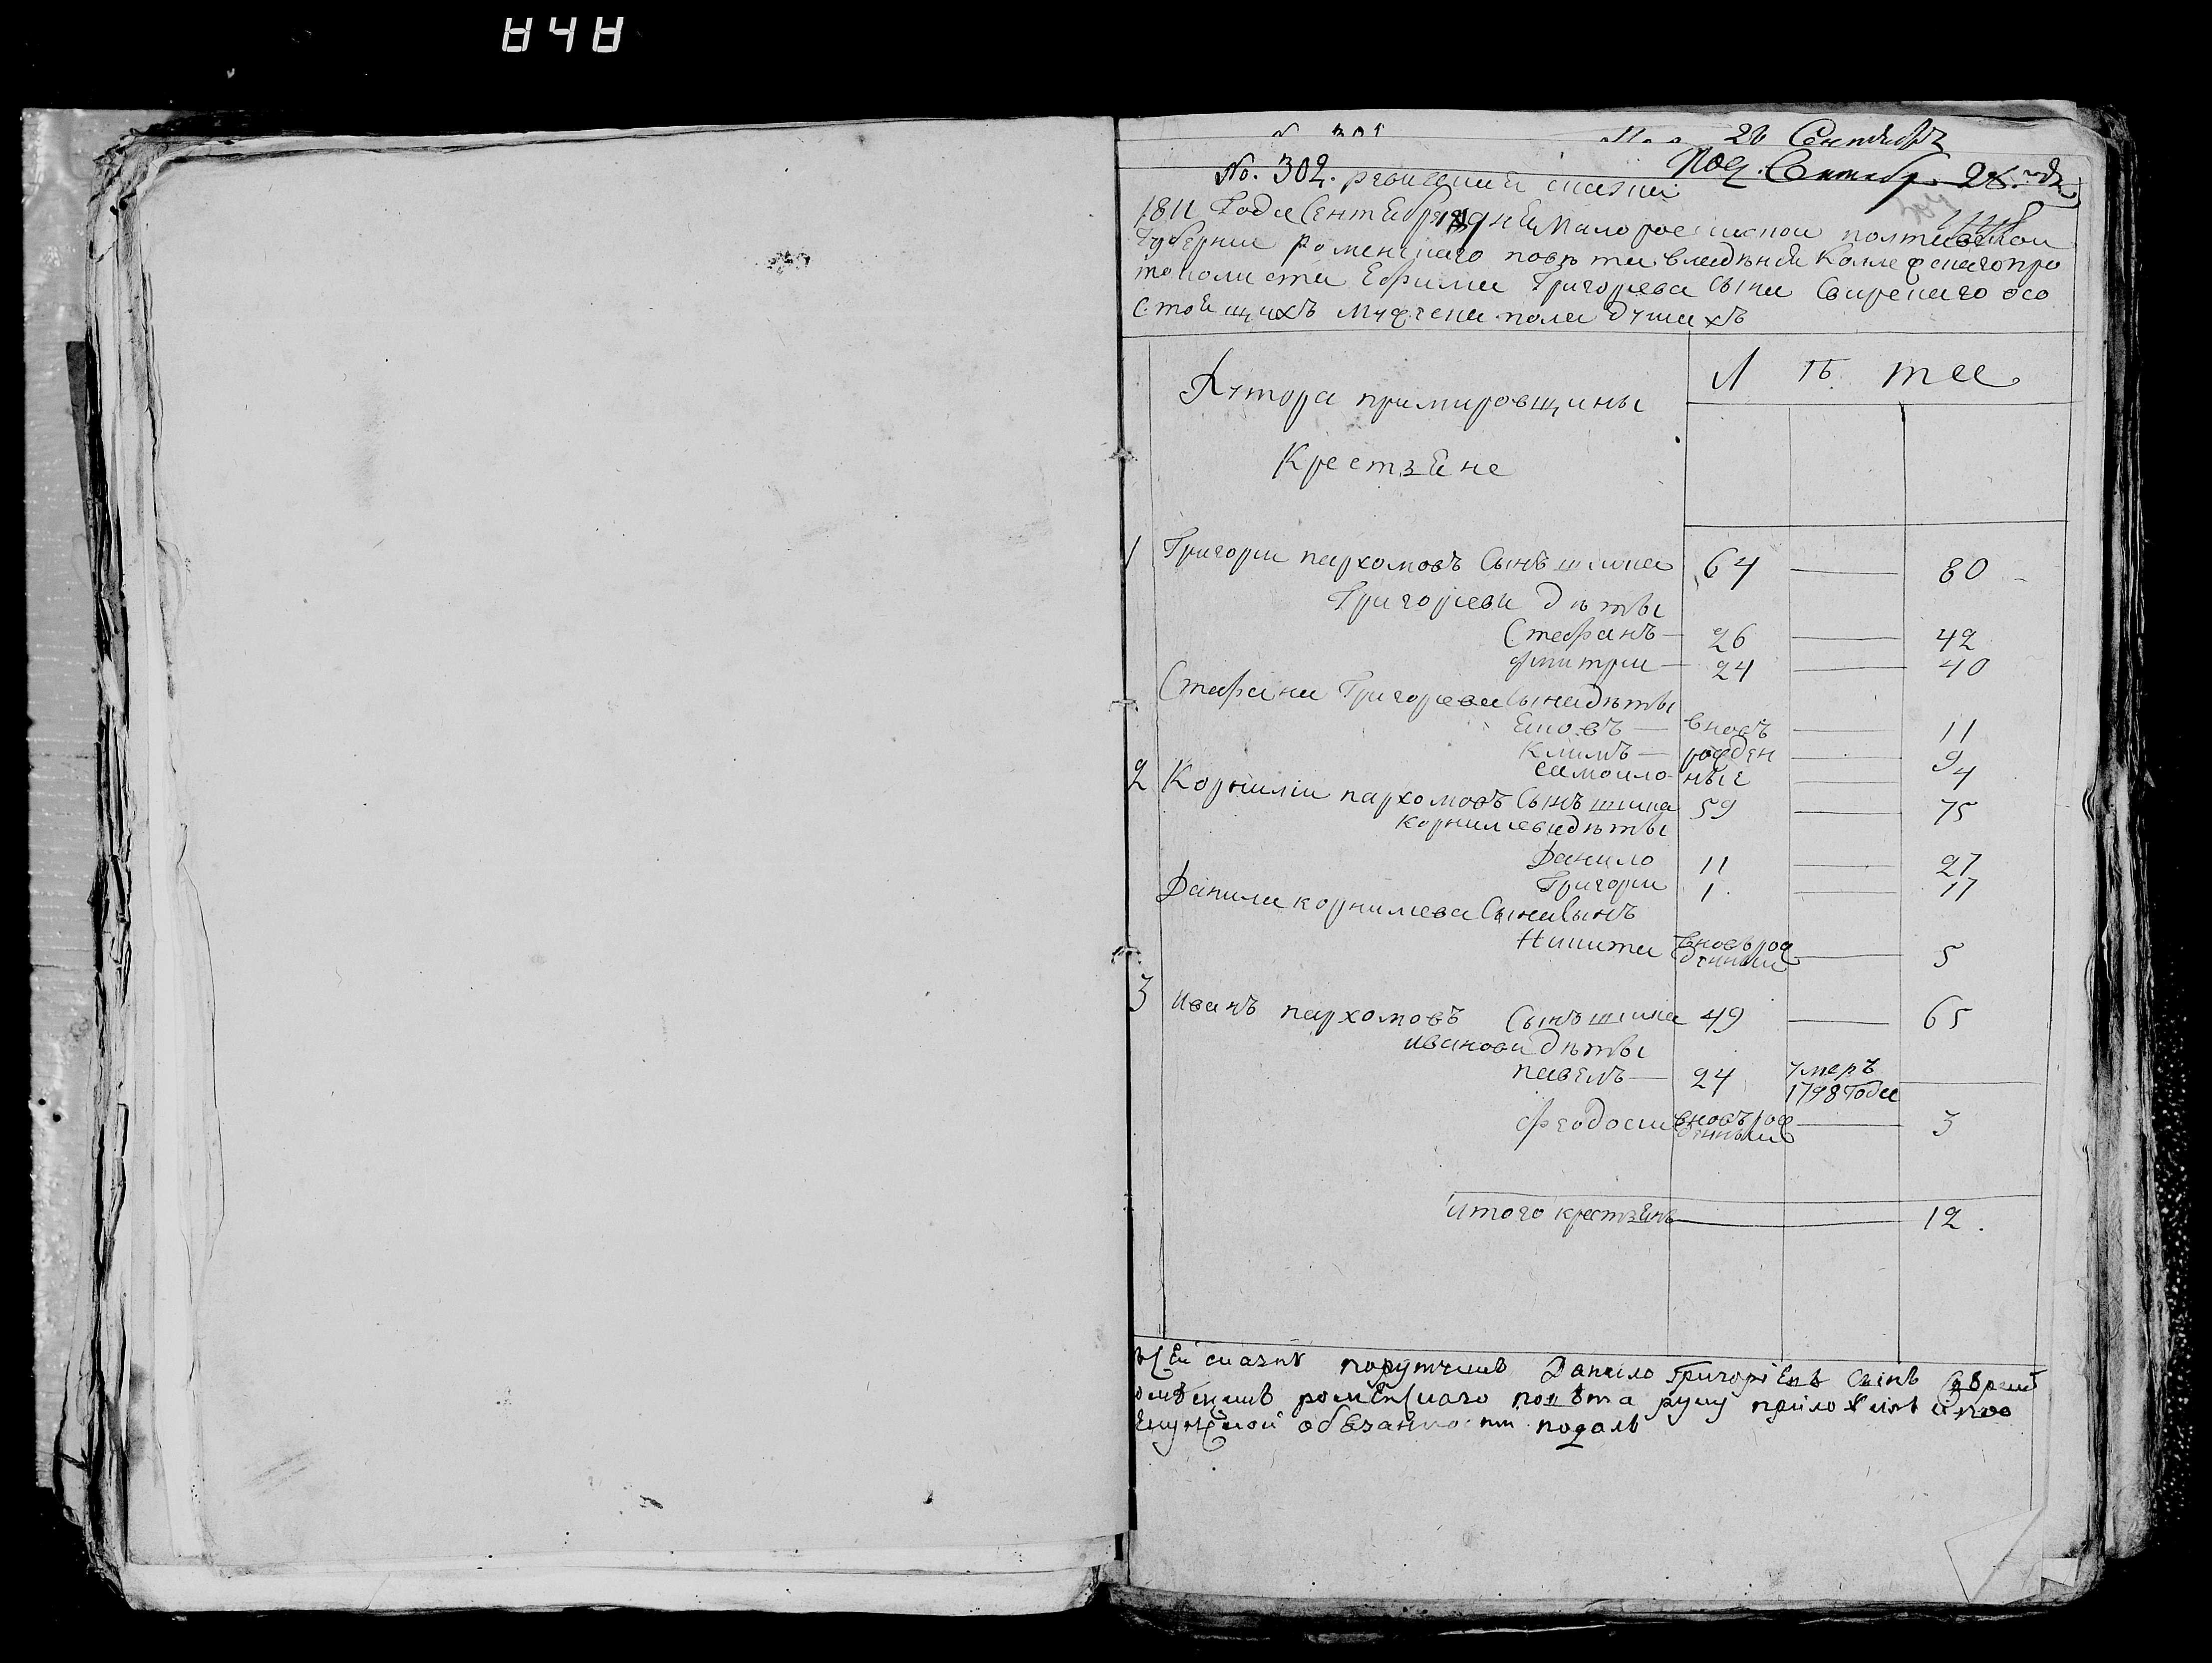 848
26 Сентября
No. 302. ревизския сказки
Под. Сентябр. 28.
1811 Года Сентебря дня малоросискои полтавскои
Губернии роменского повѣта владѣния Коллежскаго про
токолиста Ефима Григорева сына Свирскаго осо
стоящихъ мужеска пола душахъ
Хутора примировщины
Лѣта
Крестяне
1 Григори пархомовъ Сынъ шика 64 — 80
Григореви дѣты
Стефанъ — 26 — 42
дмитри — 24 — 40
Стефана Григорева Сына дѣты
Яковъ — вновъ — 11
Климъ — рожден — 9
самоило — ные — 4
2 Корнилии пархомовъ Сынъ шика 59 — 75
корнилиеви дѣты
Данило 11 — 27
Григори 1. — 17
Данила корнилиева Сына Сынъ
Никита вновърож — 5
денныи
3 иванъ пархомовъ Сынъ шика 49 — 65
иванови дѣты
павелъ — 24 умеръ —
1798 Года
Феодоси вновърож — 3
денныи
итого крестянъ — 12.
сей сказкѣ порутчикъ Данило Григориевъ синъ
помѣщикъ роменского повѣта руку приложилъ и
обезаности подалъ